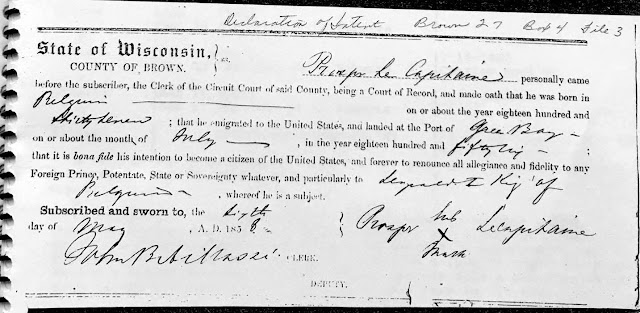 Declaration of Intent Brown 27 Box 4 File 3
State of Wisconsin, } ss,
COUNTY OF BROWN.
Prosper Le Capitaine personally came
before the subscriber, the Clerk of the Circuit Court of said County, being a Court of Record, and made oath that he was born in
Belgium on or about the year eighteen hundred and
; that he emigrated to the United States, and landed at the Port of Green Bay
on or about the month of July , in the year eighteen hundred and ;
that it is bona fide his intention to become a citizen of the United States, and forever to renounce all allegiance and fidelity to any
Foreign Prince, Potentate, State or Sovereignty whatever, and particularly to Leopold I King of
Belgium , whereof he is a subject.
Subscribed and sworn to, the sixth
day of May , A. D. 1858 } Prosper his X mark Lecapitaine
John B CLERK.
DEPUTY.